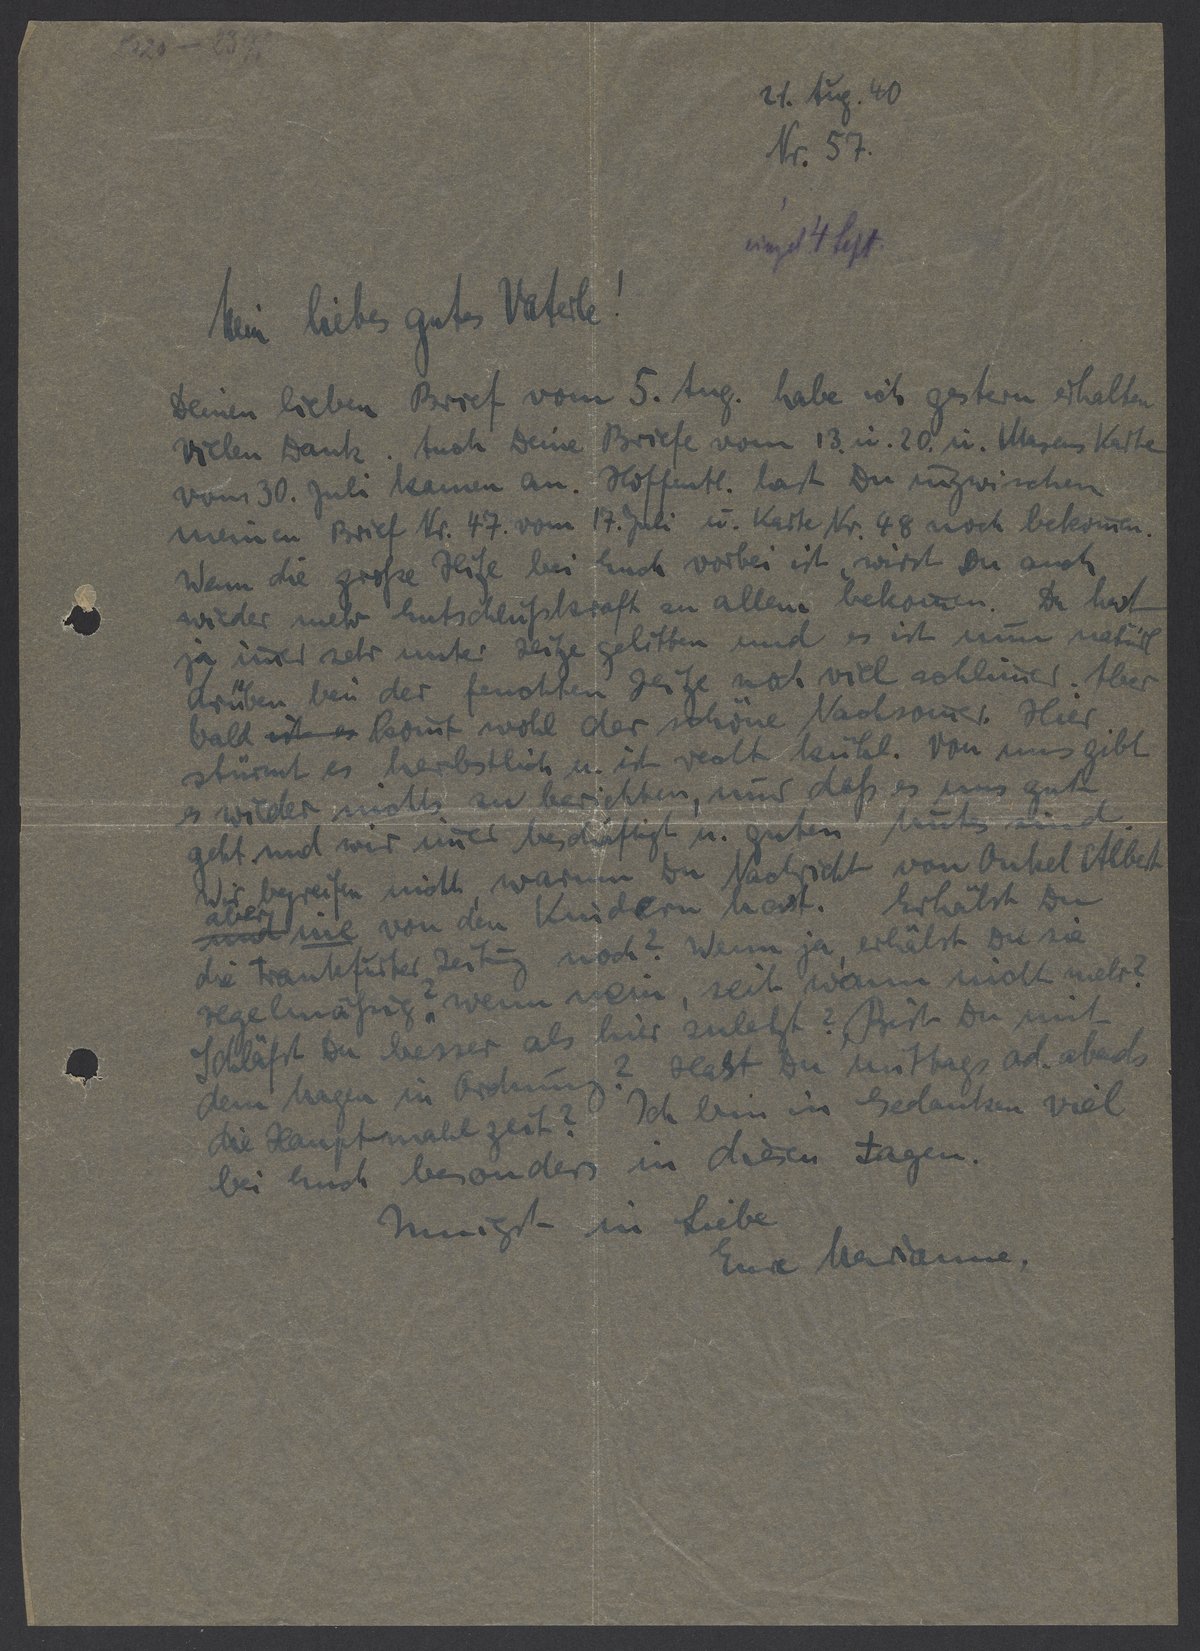 21. Aug. 40
Nr. 57.
4 Sept.
Mein liebes gutes Vaterle!
Deinen lieben Brief vom 5. Aug. habe ich gestern erhalten
vielen Dank. Auch Deine Briefe vom 13. u. 20. u. Karte
vom 30. Juli kamen an. Hoffentl. hast Du inzwischen
meinen Brief Nr. 47. vom 17. Juli u. Karte Nr. 48 noch bekom̅en.
Wenn die große Hitze bei Euch vorbei ist, wirst Du auch
wieder mehr Entschlußkraft zu allem bekom̅en. Du hast
ja im̅er sehr unter Hitze gelitten und es ist nun natürl
drüben bei der feuchten Hitze noch viel schlim̅er. Aber
bald ist es kom̅t wohl der schöne Nachsom̅er. Hier
stürmt es herbstlich u. ist recht kühl. Von uns gibt
es wieder nichts zu berichten, nur daß es uns gut
geht und wir im̅er beschäftigt u. guten Mutes sind.
Wir begreifen nicht, warum Du Nachricht von Onkel Albert
aber
und nie von den Kindern hast. Erhälst Du
die Frankfurter Zeitung noch? Wenn ja, erhälst Du sie
regelmäßig? wenn nein, seit wann nicht mehr?
Schläfst Du besser als hier zuletzt? Bist Du mit
dem Magen in Ordnung? Hast Du mittags od. abends
die Hauptmahlzeit? Ich bin in Gedanken viel
bei Euch besonders in diesen Tagen.
Innigst in Liebe
Eure Marianne.